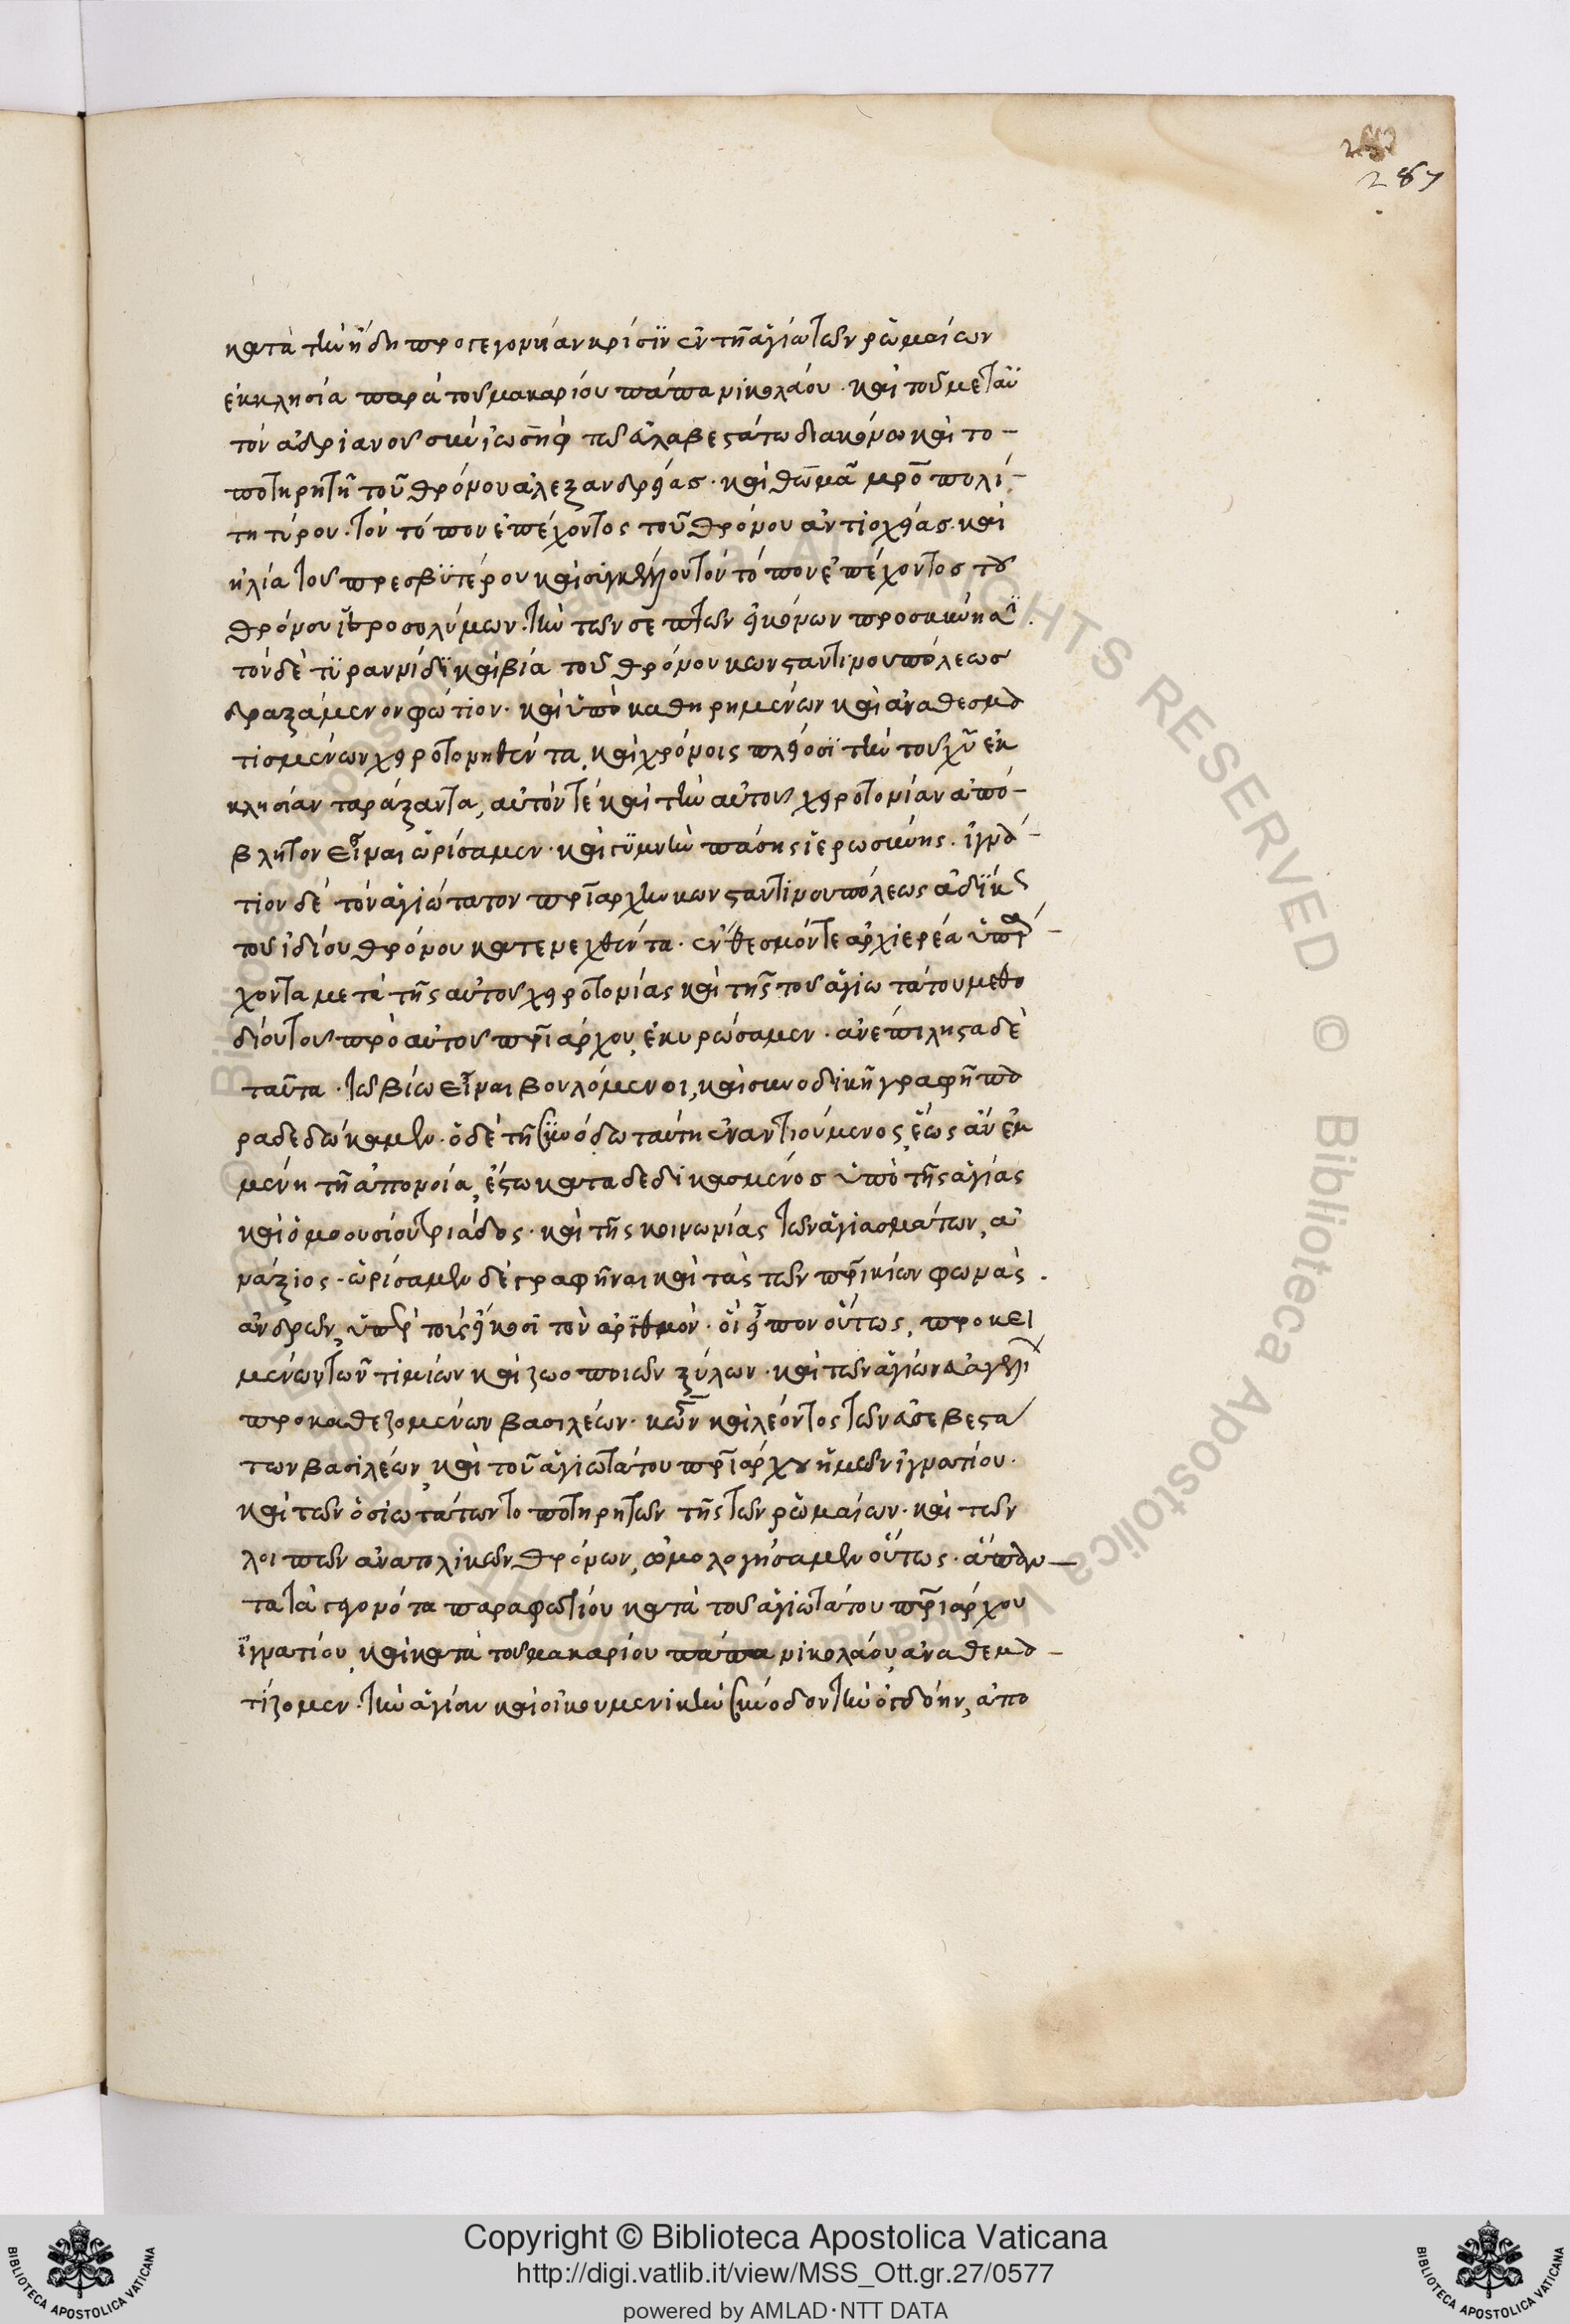 287
κατὰ τὴν ἤδη προγεγονυίαν κρίσϊν ἐν τῆ ἁγία τῶν ῥωμαίων
ἐκκλησία παρὰ τοῦ μακαρίου πάπα νικολάου · καὶ τοῦ μετ αὐ
τὸν ἀδριανοῦ σὺν ἰωσὴφ τῶ εὐλαβεστάτω διακόνω καὶ το-
ποτηρητῆ τοῦ θρόνου ἀλεξανδρείασ · καὶ θωμᾶ μρο πολί-
τη τύρου · τὸν τόπον ἐπέχοντος τοῦ θρόνου ἀντιοχείασ · καὶ
ηλία τοῦ πρεσβϋτέρου καὶ συγκέλλου τὸν τόπον ἐπέχοντοσ τοῦ
θρόνου ἱεροσολύμων · τὴν τῶν σεπτῶν εἰκόνων προσκύνησϊ ·
τὸν δὲ τϋραννίδϊ καὶ βία τοῦ θρόνου κωνσταντινουπόλεωσ
δραξάμενον φώτιον · καὶ ὑπὸ καθηρημένων καὶ ἀναθεσμα
τισμένων χειροτονηθέντα, καὶ χρόνοις πλείοσϊ τὴν τοῦ χυ ἐκ
κλησίαν ταράξαντα, αὐτόν τὲ καὶ τὴν αὐτοῦ χειροτονίαν ἀπό-
βλητον εἶναι ὡρίσαμεν · καὶ γϋμνὴν πάσης ἱερωσύνης · ἰγνά-
τιον δὲ τὸν ἁγιώτατον πριάρχην κωνσταντινουπόλεως ἀδίκς
τοῦ ἰδίου θρόνου κατενεχθέντα · ἔνθεσμόν τε ἀρχιερέα ὑπάρ-
χοντα μετὰ τῆς αὐτοῦ χειροτονίας καὶ τῆς τοῦ ἁγιωτάτου μεθο
δίου τοῦ πρὸ αὐτοῦ πριάρχου, ἐκυρώσαμεν · ἀνεπίληστα δὲ
ταῦτα · τῶ βίω εἶναι βουλόμενοι, καὶ συνοδικῆ γραφῆ πα
ραδεδώκαμεν · ὁ δὲ τῆ συνόδω ταύτη ἐναντιούμενος, ἕως ἂν ἐμ
μένη τῆ ἀπονοία, ἔστω καταδεδικασμένοσ ὑπὸ τῆς ἁγίας
καὶ ὁμοουσίου τριάδος · καὶ τῆς κοινωνίας τῶν ἁγιασμάτων, ἀ
νάξιος · ὡρίσαμεν δὲ γραφῆναι καὶ τὰς τῶν πρικίων φωνὰς ·
ἀνδρῶν, ὑπὲρ τοὺς εἴκοσϊ τὸν ἀρϊθμόν · οἳ εἶπον οὕτως, προκει
μένων τῶν τιμίων καὶ ζωοποιῶν ξύλων · καὶ τῶν ἁγίων εὐαγγελι
προκαθεζομένων βασιλέων · κων καὶ λέοντος τῶν εὐσεβεστα
των βασιλέων, καὶ τοῦ ἁγιωτάτου πριάρχου ἡμῶν ἰγνατίου ·
καὶ τῶν ὁσιωτάτων τοποτηρητῶν τῆς τῶν ῥωμαίων · καὶ τῶν
λοιπῶν ἀνατολικῶν θρόνων, ὡμολογήσαμεν οὕτως · ἅπαν-
τα τὰ γεγονότα παρα φωτίου κατὰ τοῦ ἁγιωτάτου πριάρχου
ἰγνατίου, καὶ κατὰ τοῦ μακαρίου πάπα νικολάου, ἀναθεμα-
τίζομεν · τὴν ἁγίαν καὶ οἰκουμενικὴν σύνοδον τὴν ὀγδόην, ἀπο
Copyright © Biblioteca Apostolica Vaticana
http://digi.vatlib.it/view/MSS_Ott.gr.27/0577
powered by AMLAD·NTT DATA